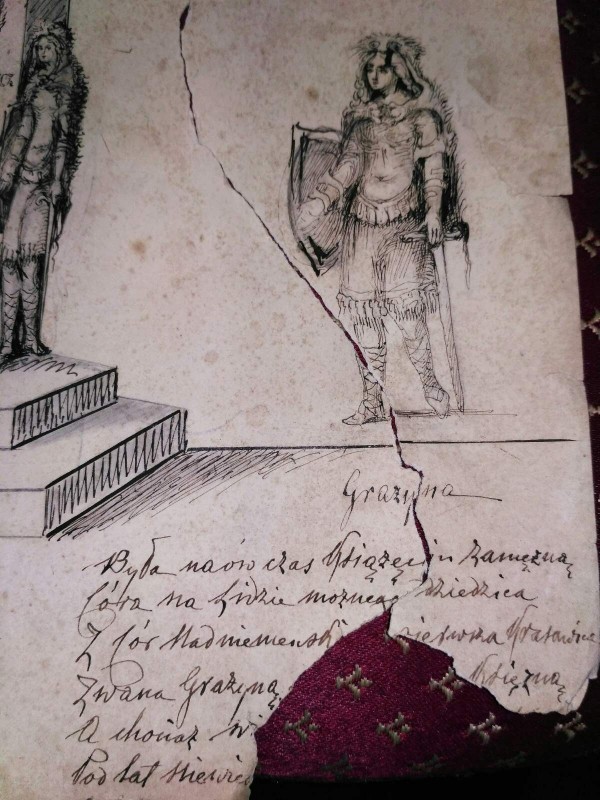 Grażyna
Była naówczas Książęciu zamężną
Córa na Lidzie możnego dziedzica
Z Cór Nadniemeński pierwsza Krasawica
Zwana Grażyną Księżną
A chociaż wi
Pod lat niewie